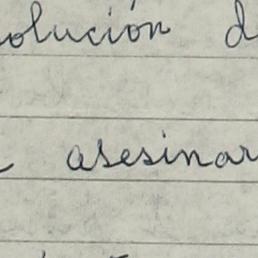 olución d
asesinar